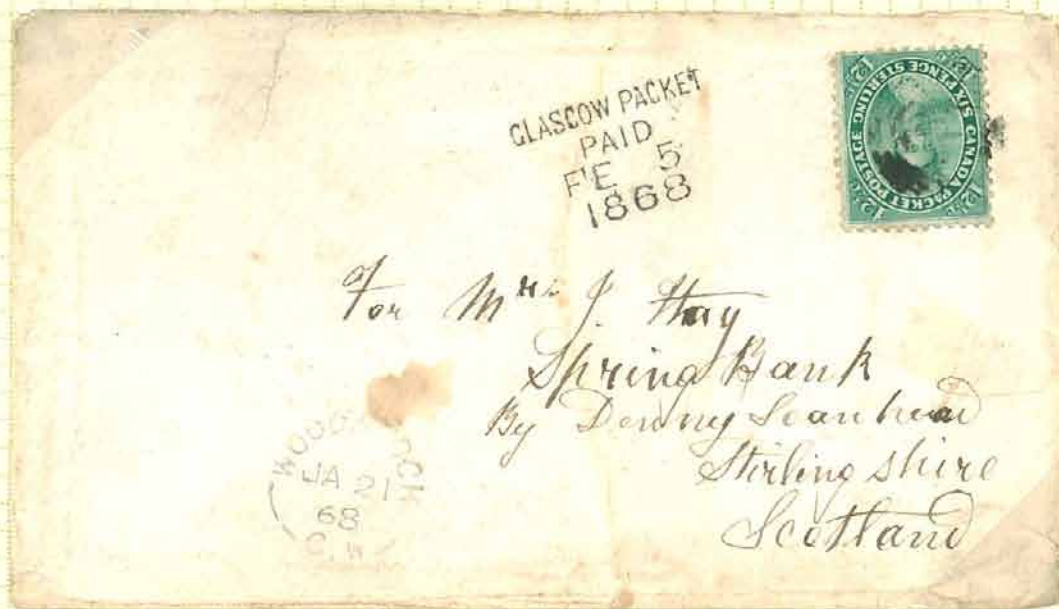 GLASCOW PACKET
PAID
FE 5
1868
CANADA PACKET POSTAGE SIX PENCE STERLING
12½c 12½c
For Mrs J. Hay
Spring Bank
By Denny Loanhead
Stirling shire
Scotland
WOODSTOCK
JA 21
68
C.W